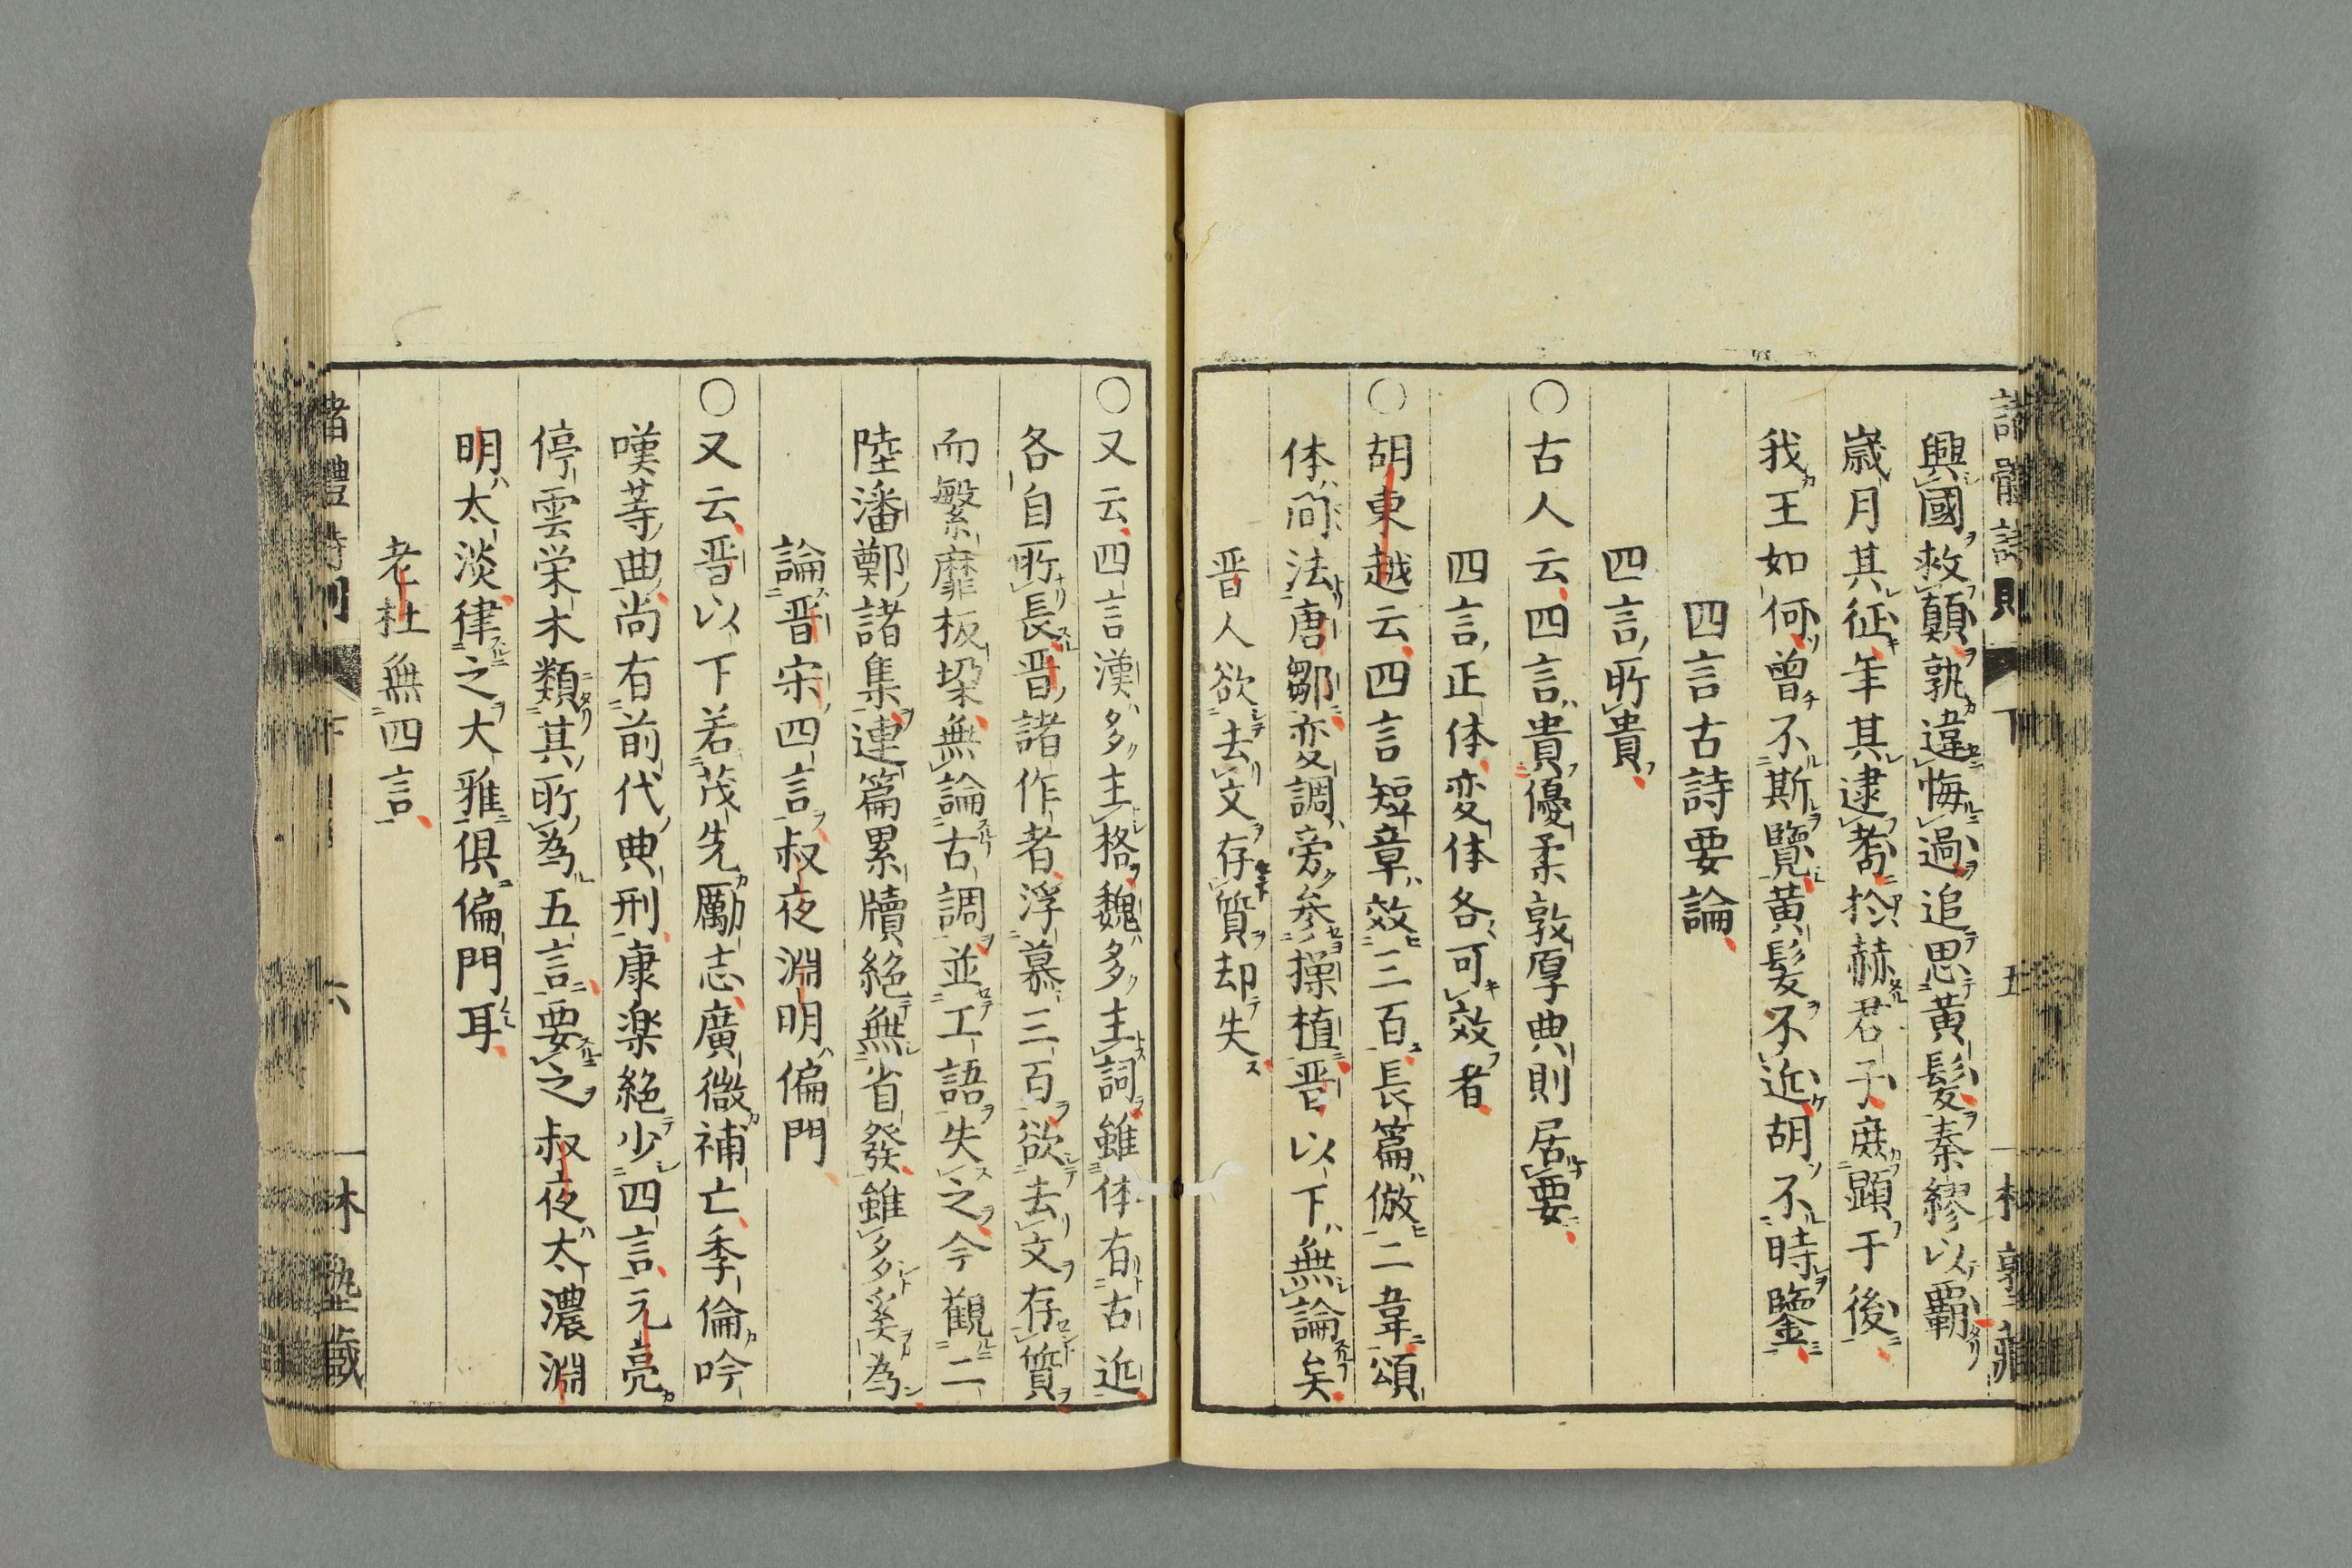 興國救顛孰違悔過追思黄髮秦繆以覇
歳月其徂年其逮耇於赫君子庶顯于後
我王如何曾不斯覽黄髪不近胡不時鑒
四言古詩要論
四言所貴
○古人云四言貴優柔敦厚典則居要
四言正体変体各可效者
○胡東越云四言短章效三百長篇倣二韋頌
体間法唐鄒変調旁参操植晋以下無論矣
晋人欲去文存質却失
詩體詩則 下 五
○又云四言漢多主格魏多主詞雖体有古近
各自所長晋諸作者浮慕三百欲去文存質
而繁靡板垜無論古調並工語失之今觀二
陸潘鄭諸集連篇累牘絶無省發雖多奚為
論晋宋四言叔夜淵明偏門
○又云晋以下若茂先勵志廣微補亡季倫吟
嘆等曲尚有前代典刑康楽絶少四言元亮
停雲栄木類其所為五言要之叔夜太濃淵
明太淡律之大雅俱偏門耳
老杜無四言
諸體詩則 下 六